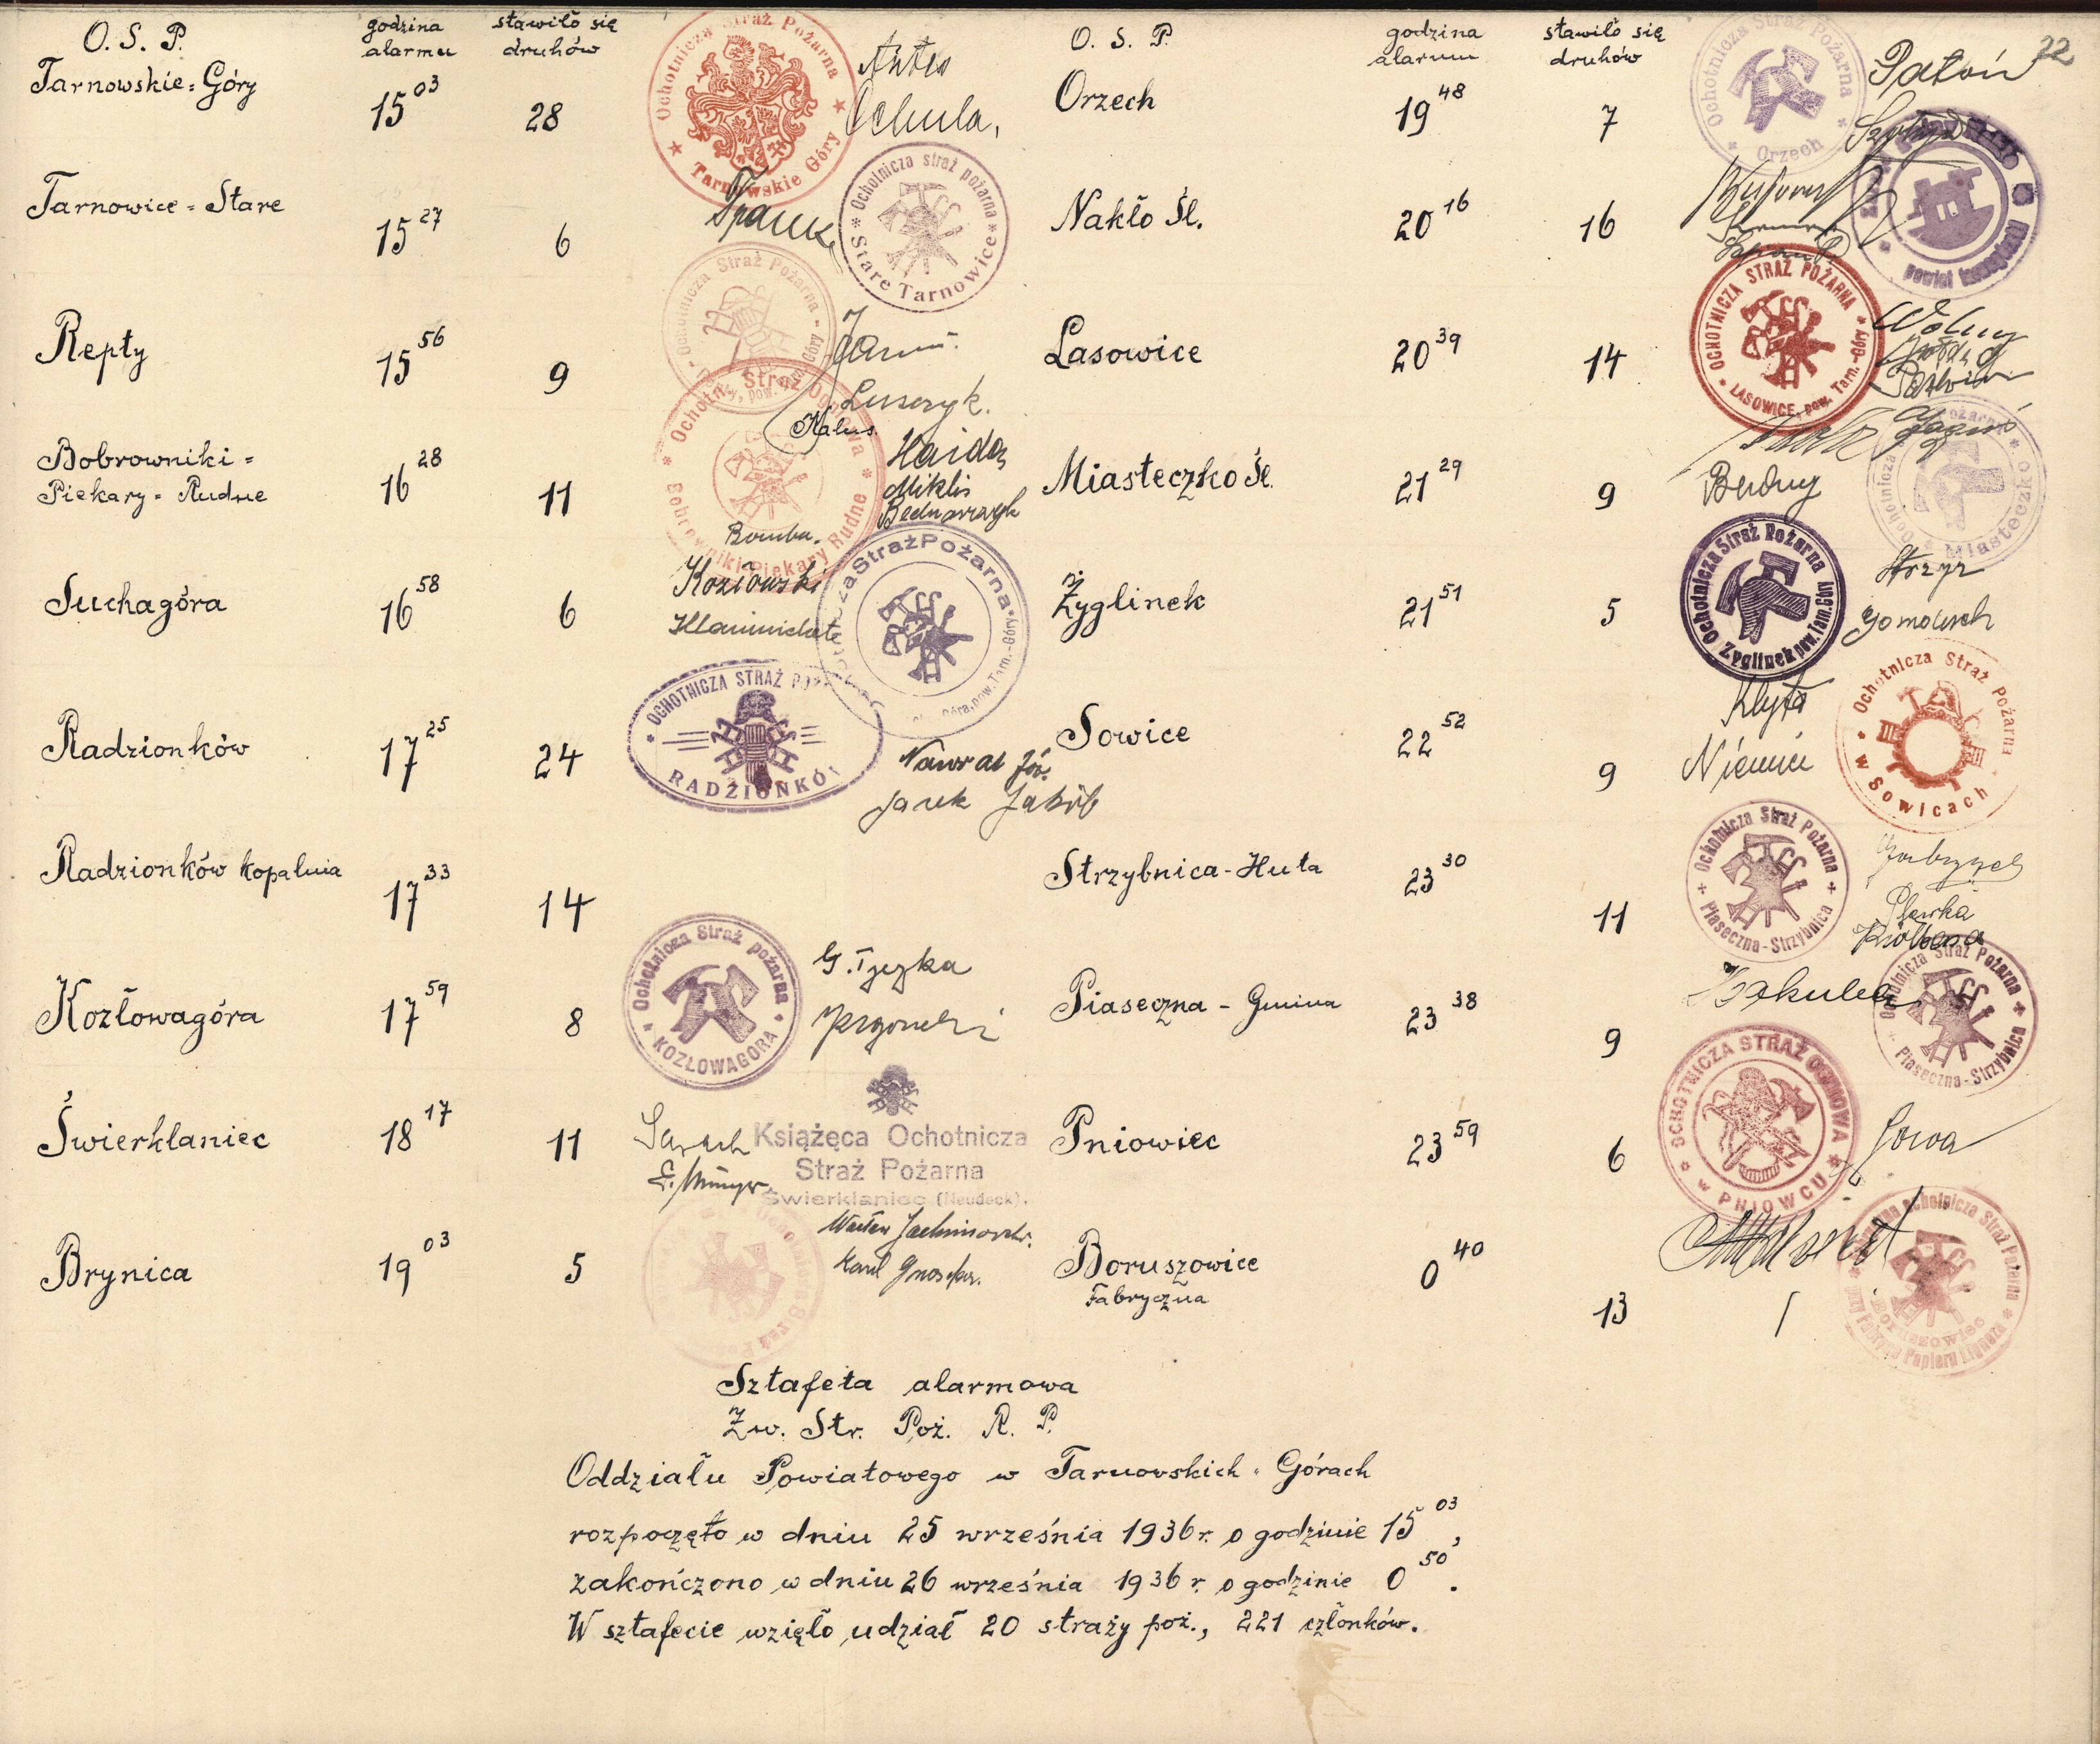 O. S. P. godzina alarmu stawiło się druhów
Tarnowskie-Góry 15 03 28
Ochotnicza Straż Pożarna Tarnowskie Góry
Tarnowice-Stare 15 27 6
Ochotnicza straż pożarna Stare Tarnowice
Repty 15 56 9
Straż Pożarna
Kalus.
Bobrowniki-
Piekary-Rudne 16 28 11
Ochotn. Straż Ogniowa Bobrowniki Piekary Rudne
Haida
Miklis
Bednarczyk
Bomba.
Suchagóra 16 58 6
Kozłowski
Straż Pożarna Góra, pow. Tarn.-Góry
Radzionków 17 25 24
OCHOTNICZA STRAŻ
RADZIONKÓ
Nawrat Józ.
Jarek Jakób
Radzionków kopalnia 17 33 14
Kozłowagóra 17 59 8
Ochotnicza Straż pożarna KOZŁOWAGÓRA
G. Tyczka
Świerklaniec 18 17 11
Książęca Ochotnicza
Straż Pożarna
Świerklaniec (Neudeck).
Brynica 19 03 5
O. S. P. godzina alarmu stawiło się druhów
72
Orzech 19 48 7
Ochotnicza Straż Pożarna Orzech
Nakło Śl. 20 16 16
Lasowice 20 39 14
OCHOTNICZA STRAŻ POŻARNA LASOWICE, pow. Tarn.-Góry
Wolny
Miasteczko Śl. 21 29 9
Budny
Ochotnicza Pożarna Miasteczko
Żyglinek 21 51 5
Ochotnicza Straż Pożarna Żyglinek pow. Tarn. Góry
Sowice 22 52 9
Ochotnicza Straż Pożarna w Sowicach
Kłyta
Strzybnica-Huta 23 30 11
Ochotnicza Straż Pożarna Piaseczna-Strzybnica
Piaseczna-Gmina 23 38 9
Ochotnicza Straż Pożarna Piaseczna-Strzybnica
Pniowiec 23 59 6
OCHOTNICZA STRAŻ OGNIOWA W PNIOWCU
Sowa
Boruszowice
Fabryczna 0 40 13
Ochotnicza Straż Pożarna
Sztafeta alarmowa
Zw. Str. Poż. R. P.
Oddziału Powiatowego w Tarnowskich-Górach
rozpoczęto w dniu 25 września 1936 r. o godzinie 15 03,
zakończono w dniu 26 września 1936 r. o godzinie 0 50.
W sztafecie wzięło udział 20 straży poż., 221 członków.